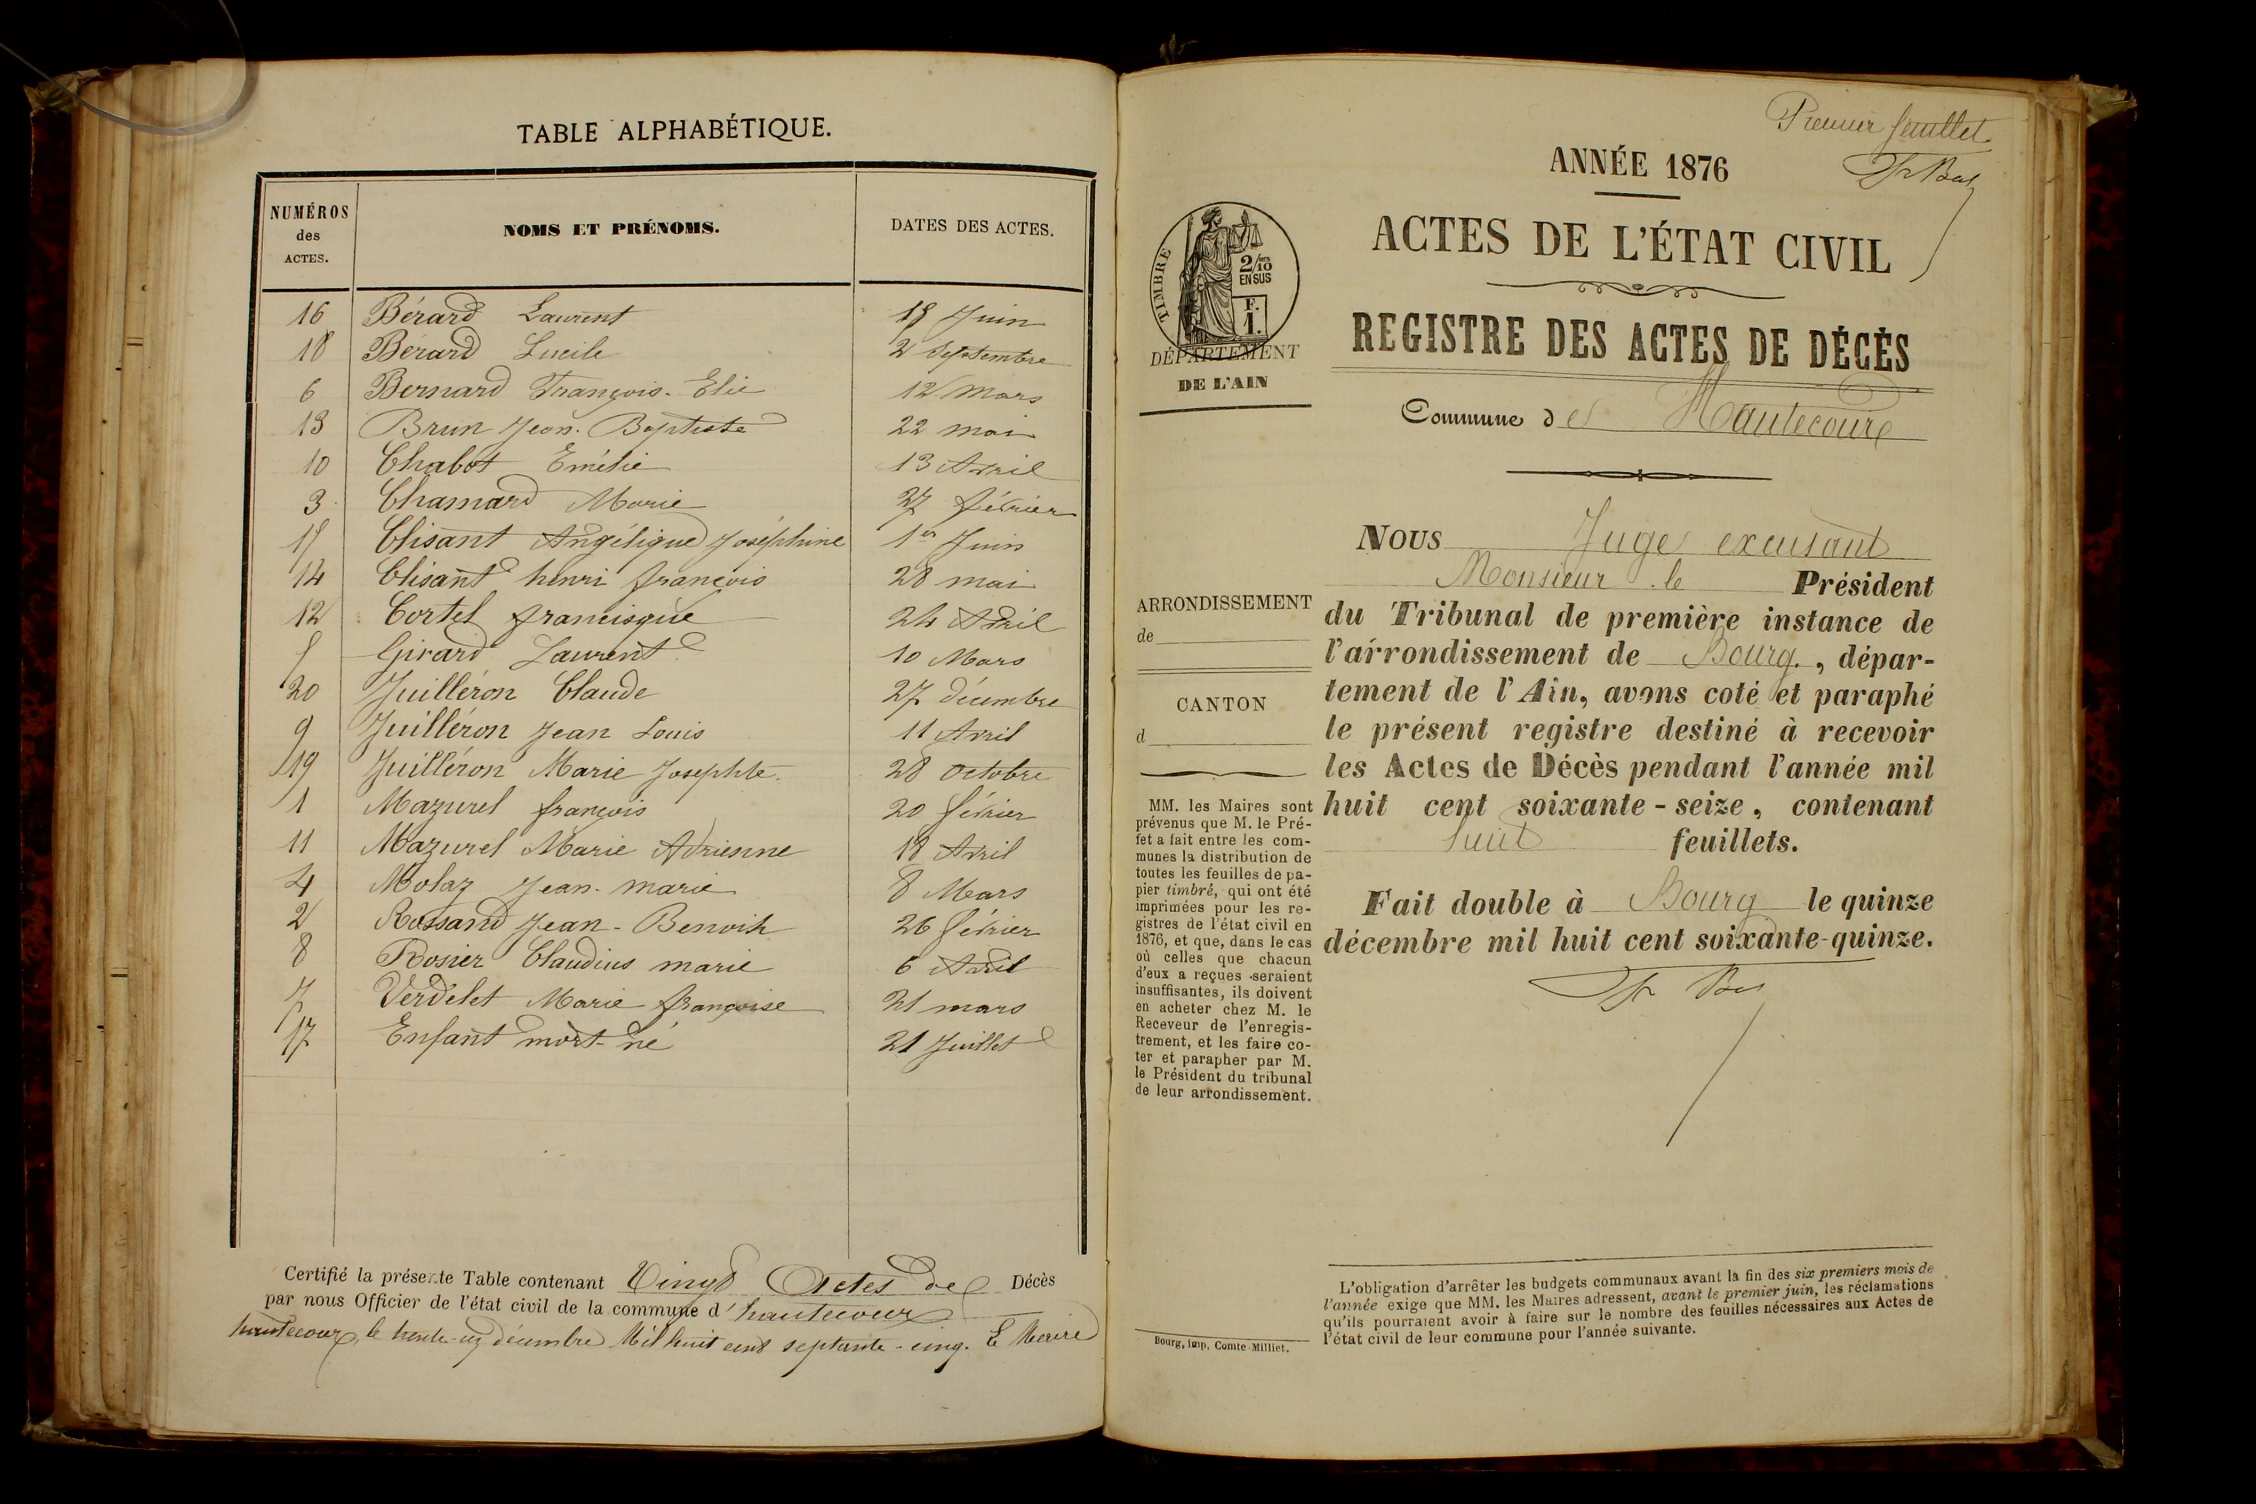 TABLE ALPHABÉTIQUE.
NUMÉROS
des
ACTES.
NOMS ET PRÉNOMS.
DATES DES ACTES.
16 Bérard Laurent 18 Juin
18 Bérard Lucile 2 Septembre
6 Bernard François-Elie 12 Mars
13 Brun Jean-Baptiste 22 mai
10 Chabot Emélie 13 Avril
3 Chamard Marie 27 février
15 Clisant Angélique Joséphine 1er Juin
14 Clisant henri françois 28 mai
12 Cortel francisque 24 Avril
5 Girard Laurent 10 Mars
20 Juilléron Claude 27 décembre
9 Juilléron Jean Louis 11 Avril
19 Juilléron Marie Josephte 28 octobre
1 Mazurel françois 20 février
11 Mazurel Marie Adrienne 18 Avril
4 Molaz Jean-marie 8 Mars
2 Rossand Jean-Benoit 26 février
8 Rosier Claudius marie 6 Avril
7 Verdelet Marie françoise 21 mars
17 Enfant mort-né 21 Juillet
Certifié la présente Table contenant Vingt Actes de Décès
par nous Officier de l'état civil de la commune d'hautecour
hautecour, le trente-un décembre Mil huit cent septante-cinq.
Premier feuillet
ANNÉE 1876
ACTES DE L'ÉTAT CIVIL
REGISTRE DES ACTES DE DÉCÈS
Commune de Hautecour
TIMBRE
2/10
EN SUS
F.
1.
DÉPARTEMENT
DE L'AIN
ARRONDISSEMENT
de
CANTON
d
MM. les Maires sont
prévenus que M. le Pré-
fet a fait entre les com-
munes la distribution de
toutes les feuilles de pa-
pier timbré, qui ont été
imprimées pour les re-
gistres de l'état civil en
1876, et que, dans le cas
où celles que chacun
d'eux a reçues seraient
insuffisantes, ils doivent
en acheter chez M. le
Receveur de l'enregis-
trement, et les faire co-
ter et parapher par M.
le Président du tribunal
de leur arrondissement.
Bourg, imp. Comte-Milliet.
NOUS Juge excusant
Monsieur le Président
du Tribunal de première instance de
l'arrondissement de Bourg, dépar-
tement de l'Ain, avons coté et paraphé
le présent registre destiné à recevoir
les Actes de Décès pendant l'année mil
huit cent soixante-seize, contenant
huit feuillets.
Fait double à Bourg le quinze
décembre mil huit cent soixante-quinze.
L'obligation d'arrêter les budgets communaux avant la fin des six premiers mois de
l'année exige que MM. les Maires adressent, avant le premier juin, les réclamations
qu'ils pourraient avoir à faire sur le nombre des feuilles nécessaires aux Actes de
l'état civil de leur commune pour l'année suivante.